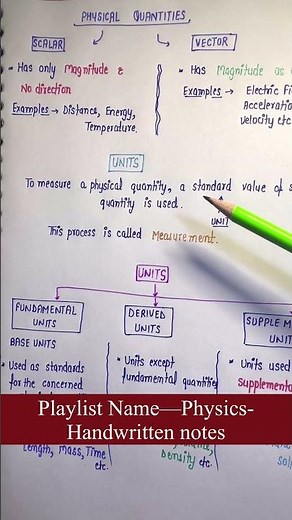 PHYSICAL QUANTITIES
SCALAR
VECTOR
• Has only Magnitude &
No direction
Examples → Distance, Energy,
Temperature.
• Has Magnitude as
Examples → Electric
Velocity etc
UNITS
To measure a physical quantity, a standard value of
quantity is used.
UNIT
This process is called Measurement.
UNITS
FUNDAMENTAL
UNITS
DERIVED
UNITS
BASE UNITS
• Used as standards
for the concerned
• Units except
fundamental
• Units used
Playlist Name—Physics-
Handwritten notes
Length, Mass, Time
etc.
Density etc.